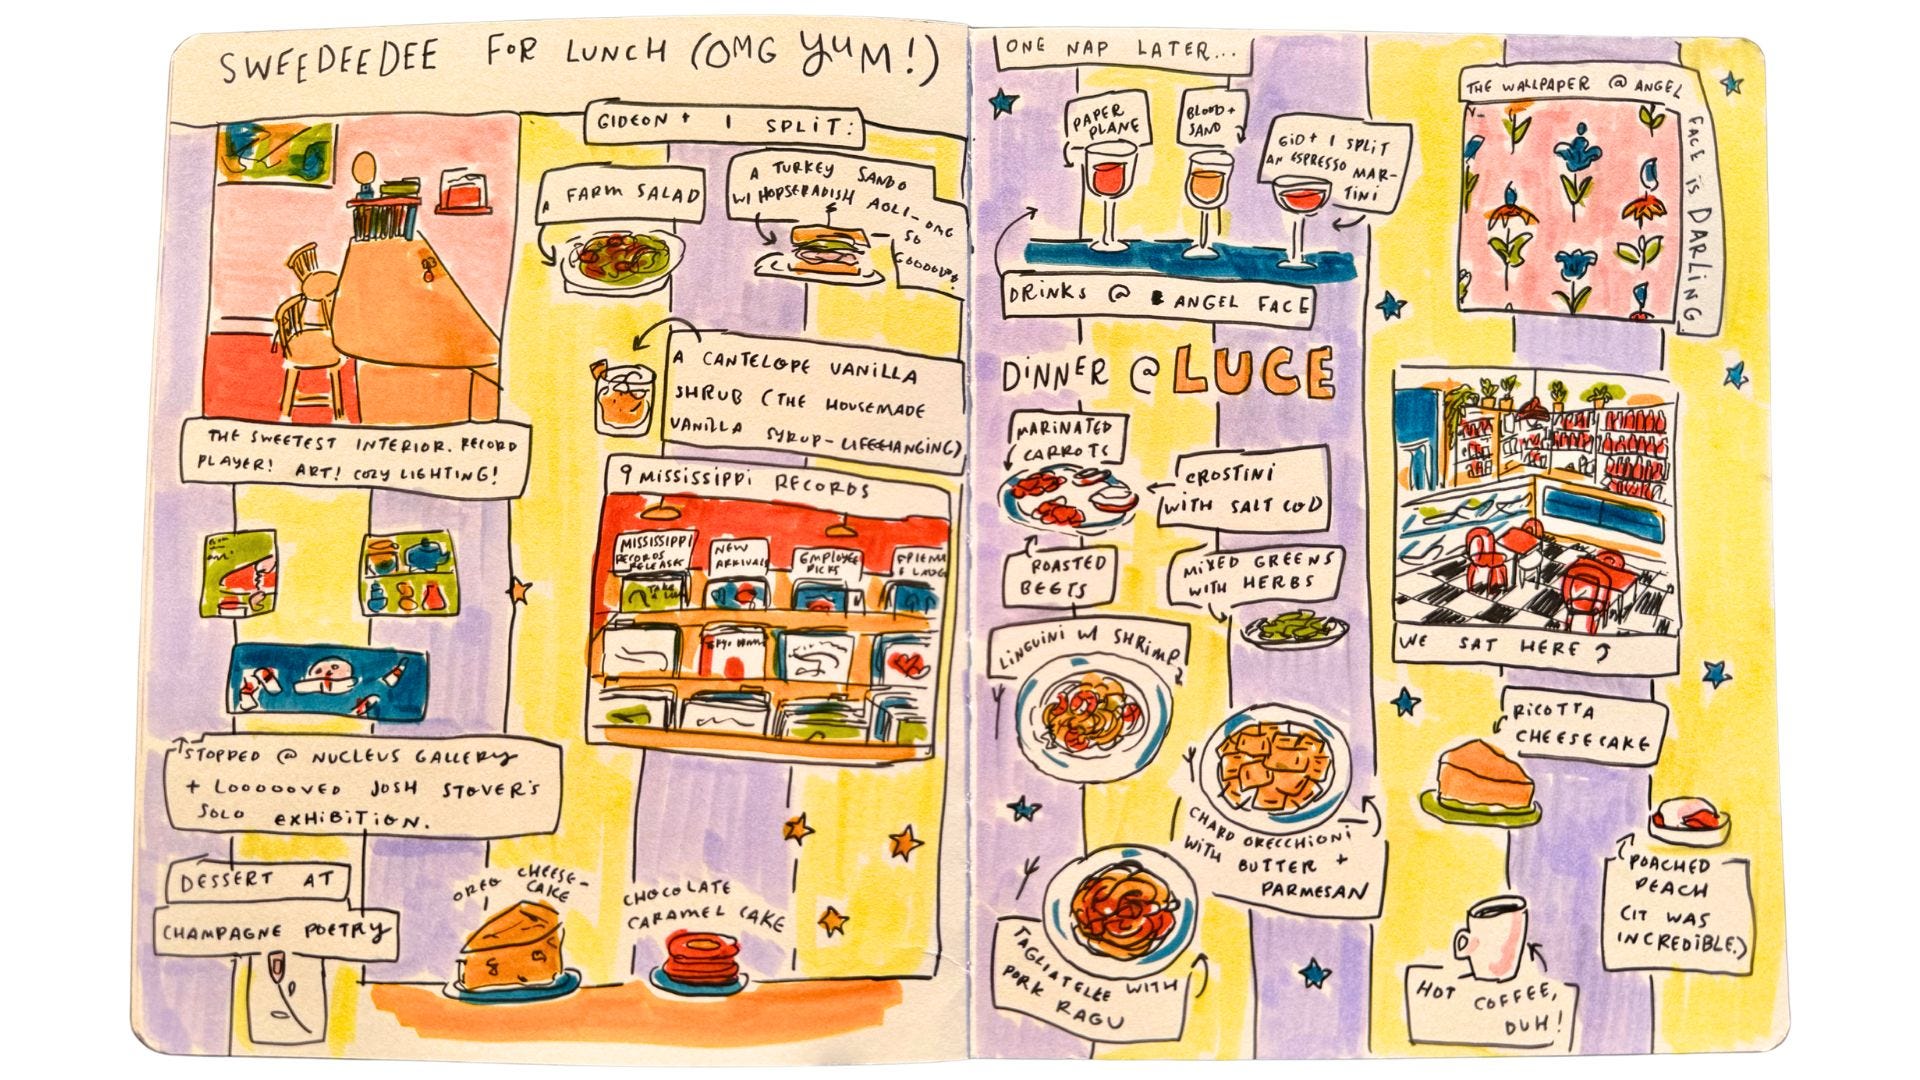 SWEEDEEDEE FOR LUNCH (OMG YUM!)
GIDEON + I SPLIT:
A FARM SALAD
A TURKEY SANDO
W/ HORSERADISH AOLI-OMG
SO
GOOOOD!
A CANTELOPE VANILLA
SHRUB (THE HOUSEMADE
VANILLA SYRUP-LIFECHANGING)
THE SWEETEST INTERIOR. RECORD
PLAYER! ART! COZY LIGHTING!
9 MISSISSIPPI RECORDS
MISSISSIPPI
RECORDS
RELEASES
NEW
ARRIVALS
EMPLOYEE
PICKS
FRIENDS
+ LAUG
STOPPED @ NUCLEUS GALLERY
+ LOOOOOVED JOSH STOVER'S
SOLO EXHIBITION.
DESSERT AT
CHAMPAGNE POETRY
OREO CHEESE-
CAKE
CHOCOLATE
CARAMEL CAKE
ONE NAP LATER...
PAPER
PLANE
BLOOD +
SAND
GID + I SPLIT
AN ESPRESSO MAR-
TINI
DRINKS @ ANGEL FACE
THE WALLPAPER @ ANGEL
FACE IS DARLING
DINNER @ LUCE
MARINATED
CARROTS
CROSTINI
WITH SALT COD
ROASTED
BEETS
MIXED GREENS
WITH HERBS
LINGUINI W/ SHRIMP
CHARD ORECCHIONI
WITH BUTTER +
PARMESAN
TAGLIATELLE WITH
PORK RAGU
WE SAT HERE
RICOTTA
CHEESECAKE
POACHED
PEACH
(IT WAS
INCREDIBLE.)
HOT COFFEE,
DUH!